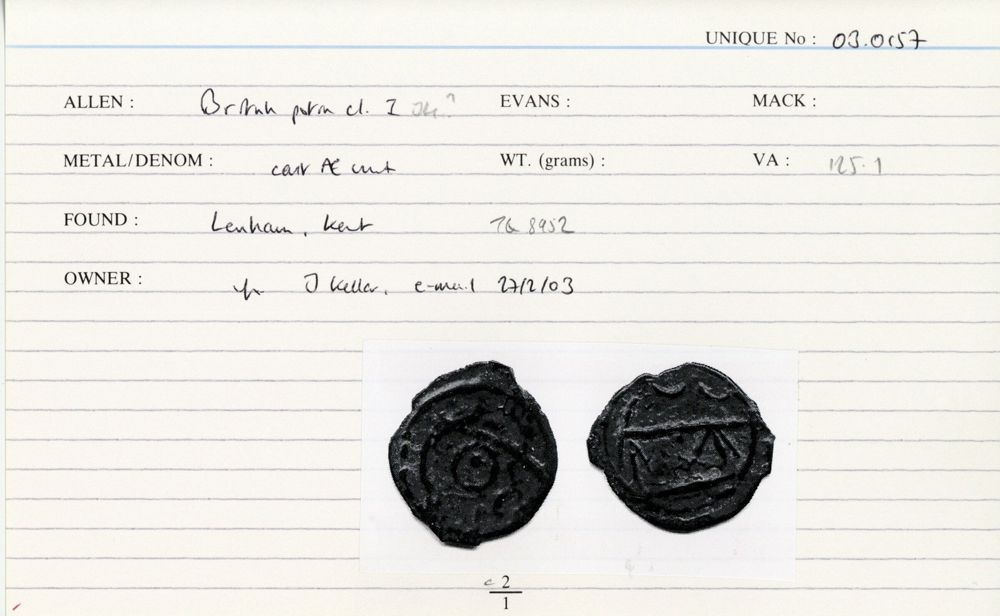 UNIQUE No : 03.0157
ALLEN : British potin cl. I EVANS : MACK :
METAL/DENOM : cast Æ unit WT. (grams) : VA : 125.1
FOUND : Lenham, Kent TQ 8952
OWNER : J Kellar, e-mail 27/2/03
c 2
1